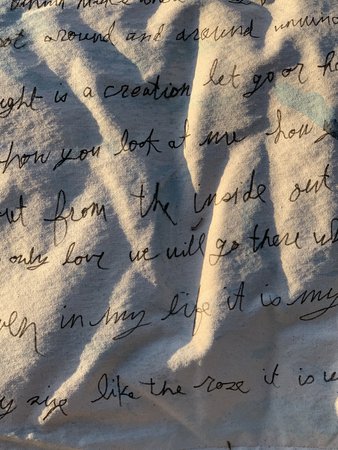 oot around and around unwind
ght is a creation let go or ho
how you look at me how y
out from the inside out
only love we will go there wh
ven in my life it is my
y size like the rose it is